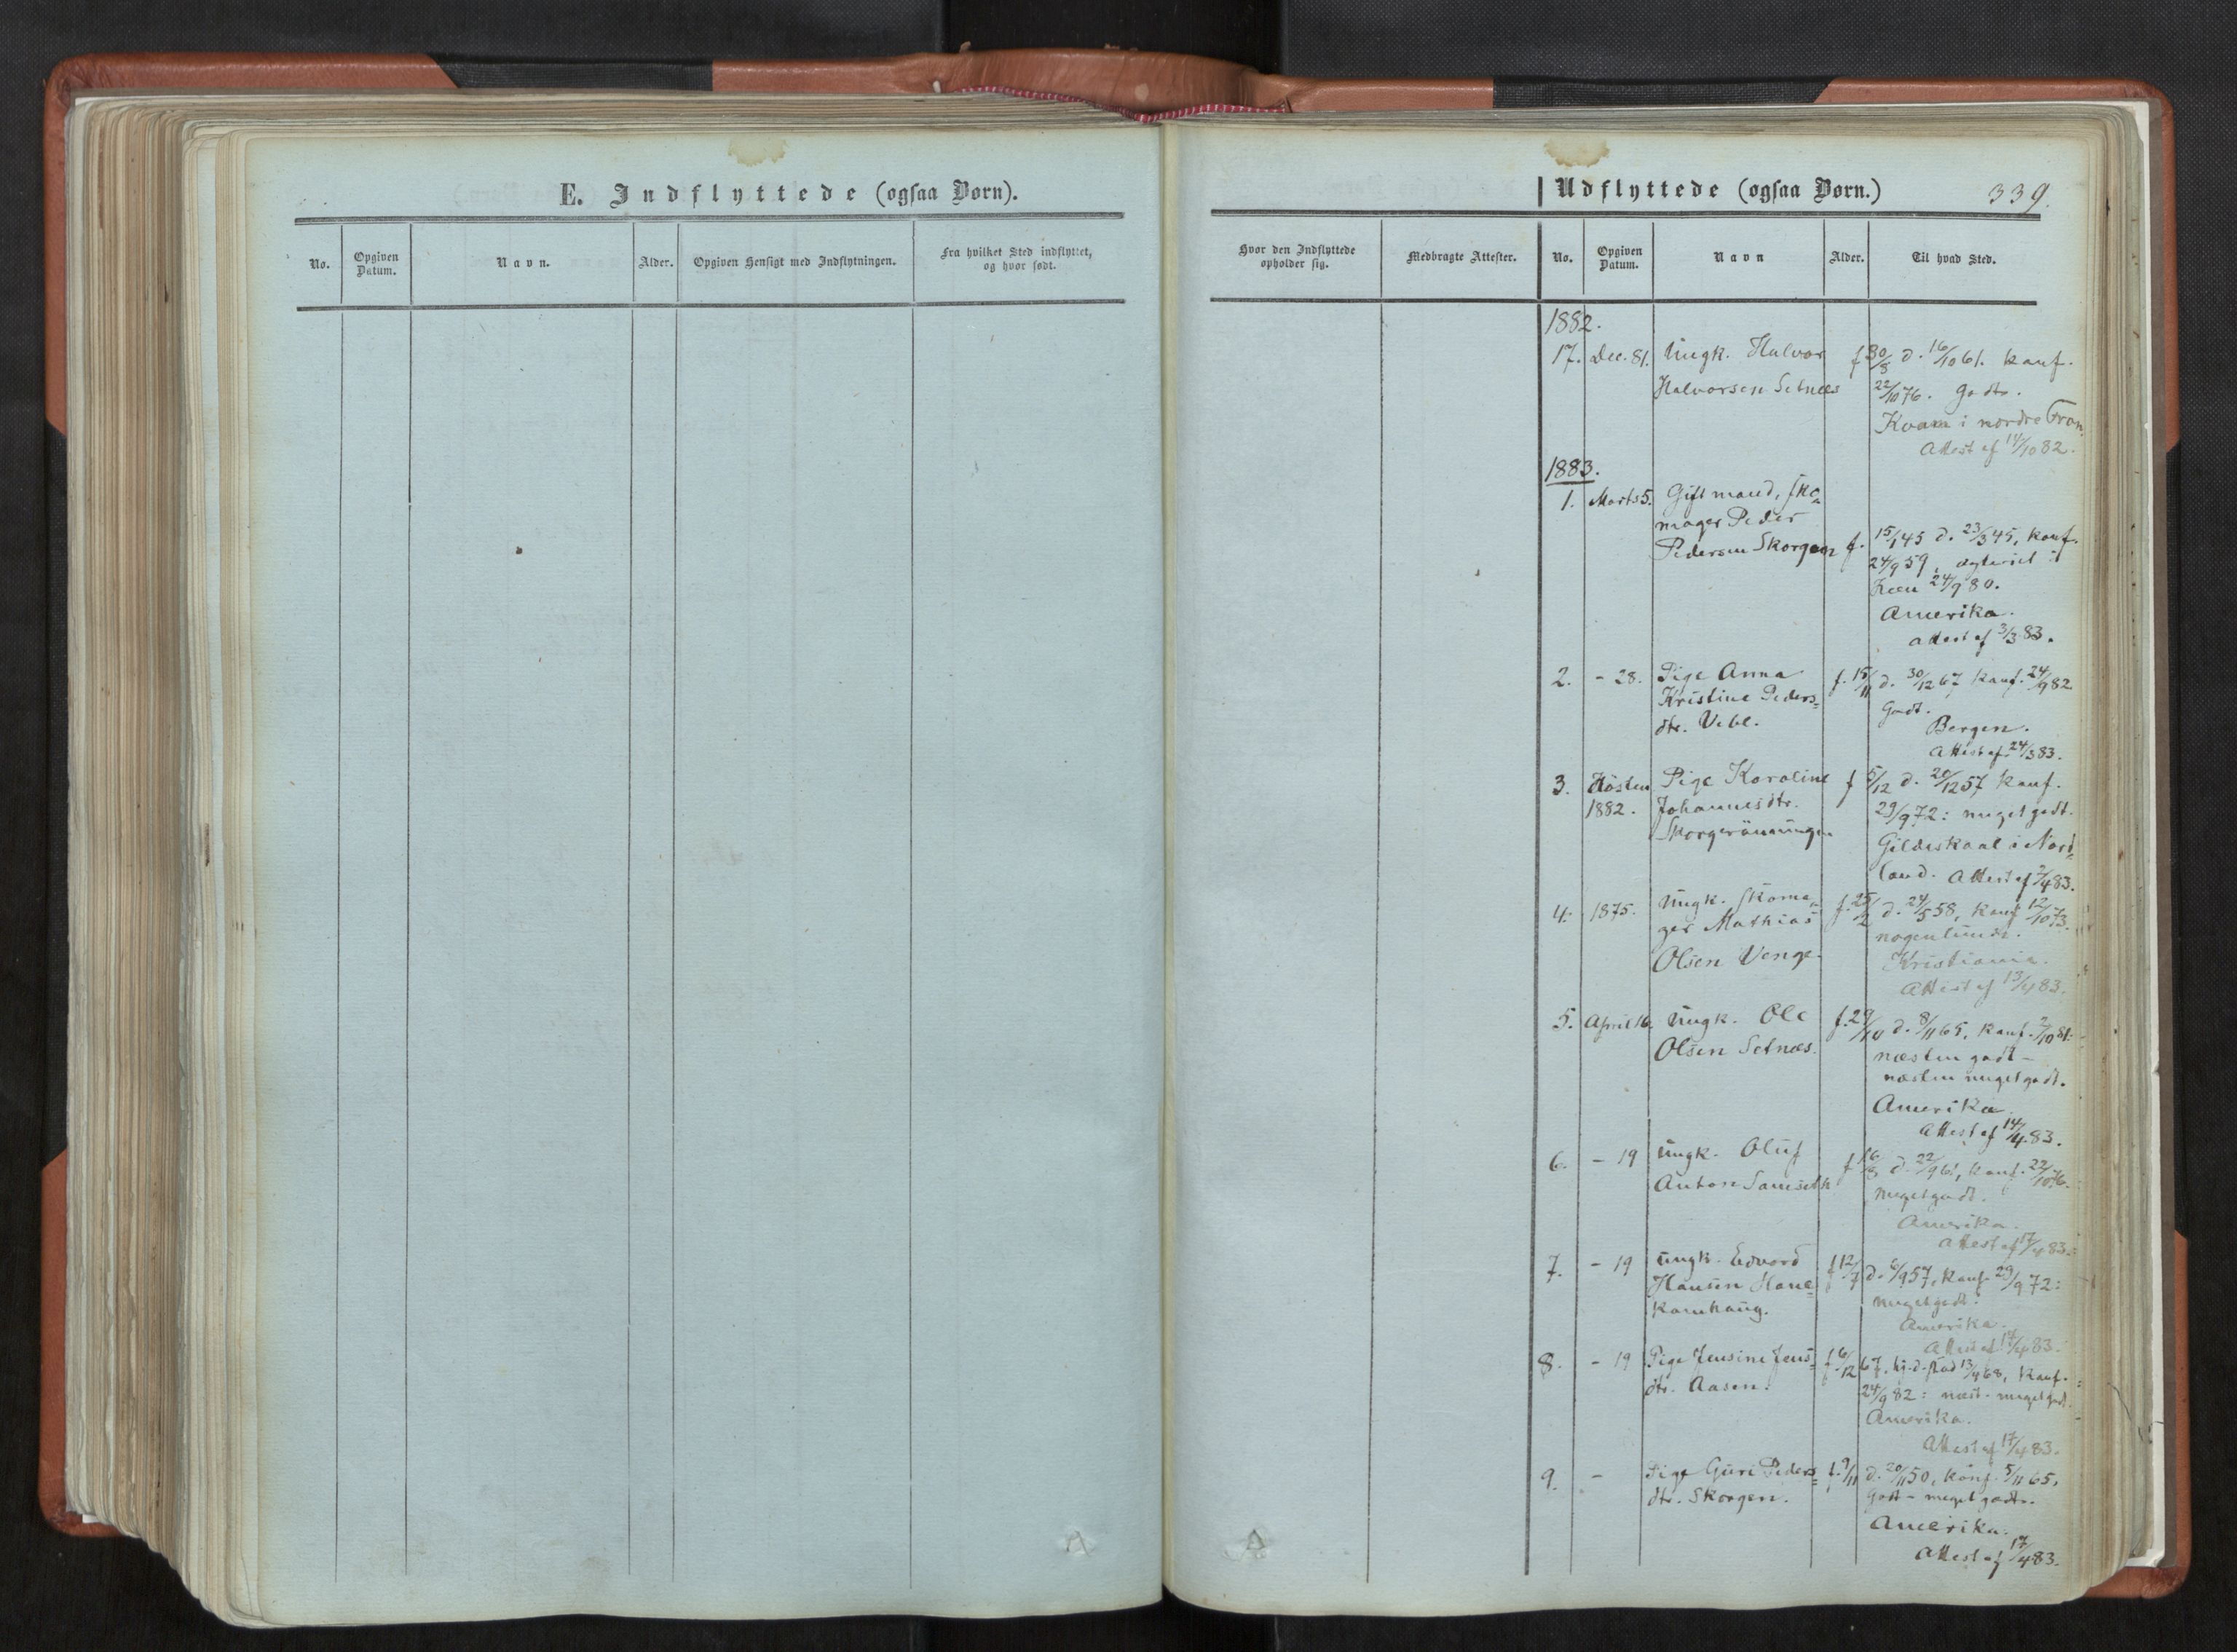 E. Indflyttede (ogsaa Børn).
No.
Opgiven Datum.
Navn.
Alder.
Opgiven Hensigt med Indflytningen.
Fra hvilket Sted indflyttet, og hvor født.
Udflyttede (ogsaa Børn.)
339.
Hvor den Indflyttede opholder sig.
Medbragte Attester.
No.
Opgiven Datum.
Navn
Alder.
Til hvad Sted.
1882.
17. Dec. 81. Ungk. Halvor f 30/8 d. 16/10 61. konf.
Halvorsen Setnæs 22/10 76. Godt.
Kvam i nordre Fron.
Attest af 14/10 82.
1883.
1. Marts 5. Gift mand, sko-
mager Peder
Pedersen Skorgen f. 15/1 45 d. 23/3 45, konf.
24/9 59, ægteviet i
24/9 80.
Amerika.
attest af 3/3 83.
2. - 28. Pige Anna f. 15/11 d. 30/12 67 konf. 24/9 82
Kristine Peders= Godt.
dtr. Veble. Bergen.
Attest af 24/3 83.
3. Høsten Pige Karoline f 5/12 d. 20/12 57 konf.
1882. Johannesdtr. 29/9 72: meget godt.
Skorgerønningen Gildeskaal i Nord=
land. Attest af 2/4 83.
4. 1875. Ungk. Skoma= f. 25/2 d. 24/5 58, konf 12/10 73.
ger Mathias nogenlunde.
Olsen Venge. Kristiania.
Attest af 13/4 83.
5. April 16. Ungk. Ole f. 29/10 d. 8/11 65, konf. 2/10 81:
Olsen Setnæs. næsten godt -
næsten meget godt.
Amerika
Attest af 14/4 83.
6. - 19 Ungk. Oluf f 16/8 d. 22/9 61, konf. 22/10 76.
Anton Samseth meget godt.
Amerika.
Attest af 17/4 83.
7. - 19 Ungk. Edvard f 12/7 d. 6/9 57, konf. 29/9 72:
Hansen Hane= meget godt.
kamhaug. Amerika.
Attest af 17/4 83.
8. - 19 Pige Jensine Jens= f. 6/12 67, hj. d. stad 13/4 68, konf.
dtr. Aasen. 24/9 82: næst. meget godt.
Amerika.
Attest af 17/4 83.
9. - Pige Guri Peders= f. 9/11 d. 20/11 50, konf. 5/11 65,
dtr. Skorgen. Godt - meget godt.
Amerika.
Attest af 17/4 83.